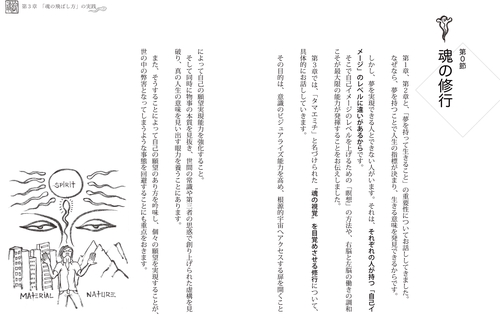 第3章 「魂の飛ばし方」の実践
第0節
魂の修行
第1章、第2章と、「夢を持って生きること」の重要性についてお話ししてきました。
なぜなら、夢を持つことで人生の指標が決まり、生きる意味を発見できるからです。
しかし、夢を実現できる人とできない人がいます。それは、それぞれの人が持つ「自己イ
メージ」のレベルに違いがあるからです。
そこで自己イメージのレベルを上げるための「瞑想」の方法や、右脳と左脳の働きの調和
こそが最大限の能力が発揮することをお伝えしました。
第3章では、「タマエミチ」と名づけられた「魂の視覚」を目覚めさせる修行について、
具体的にお話ししていきます。
その目的は、意識のビジュアライズ能力を高め、根源的宇宙へアクセスする扉を開くこと
によって自己の願望実現能力を強化すること。
そして同時に物事の本質を見抜き、世間の常識や第三者の思惑で創り上げられた虚構を見
破り、真の人生の意味を見い出す能力を養うことにあります。
また、そうすることによって自己の願望のあり方を吟味し、個々の願望を実現することが、
世の中の弊害となってしまうような事態を回避することにも重点をおきます。
SPIRIT
MATERIAL
NATURE